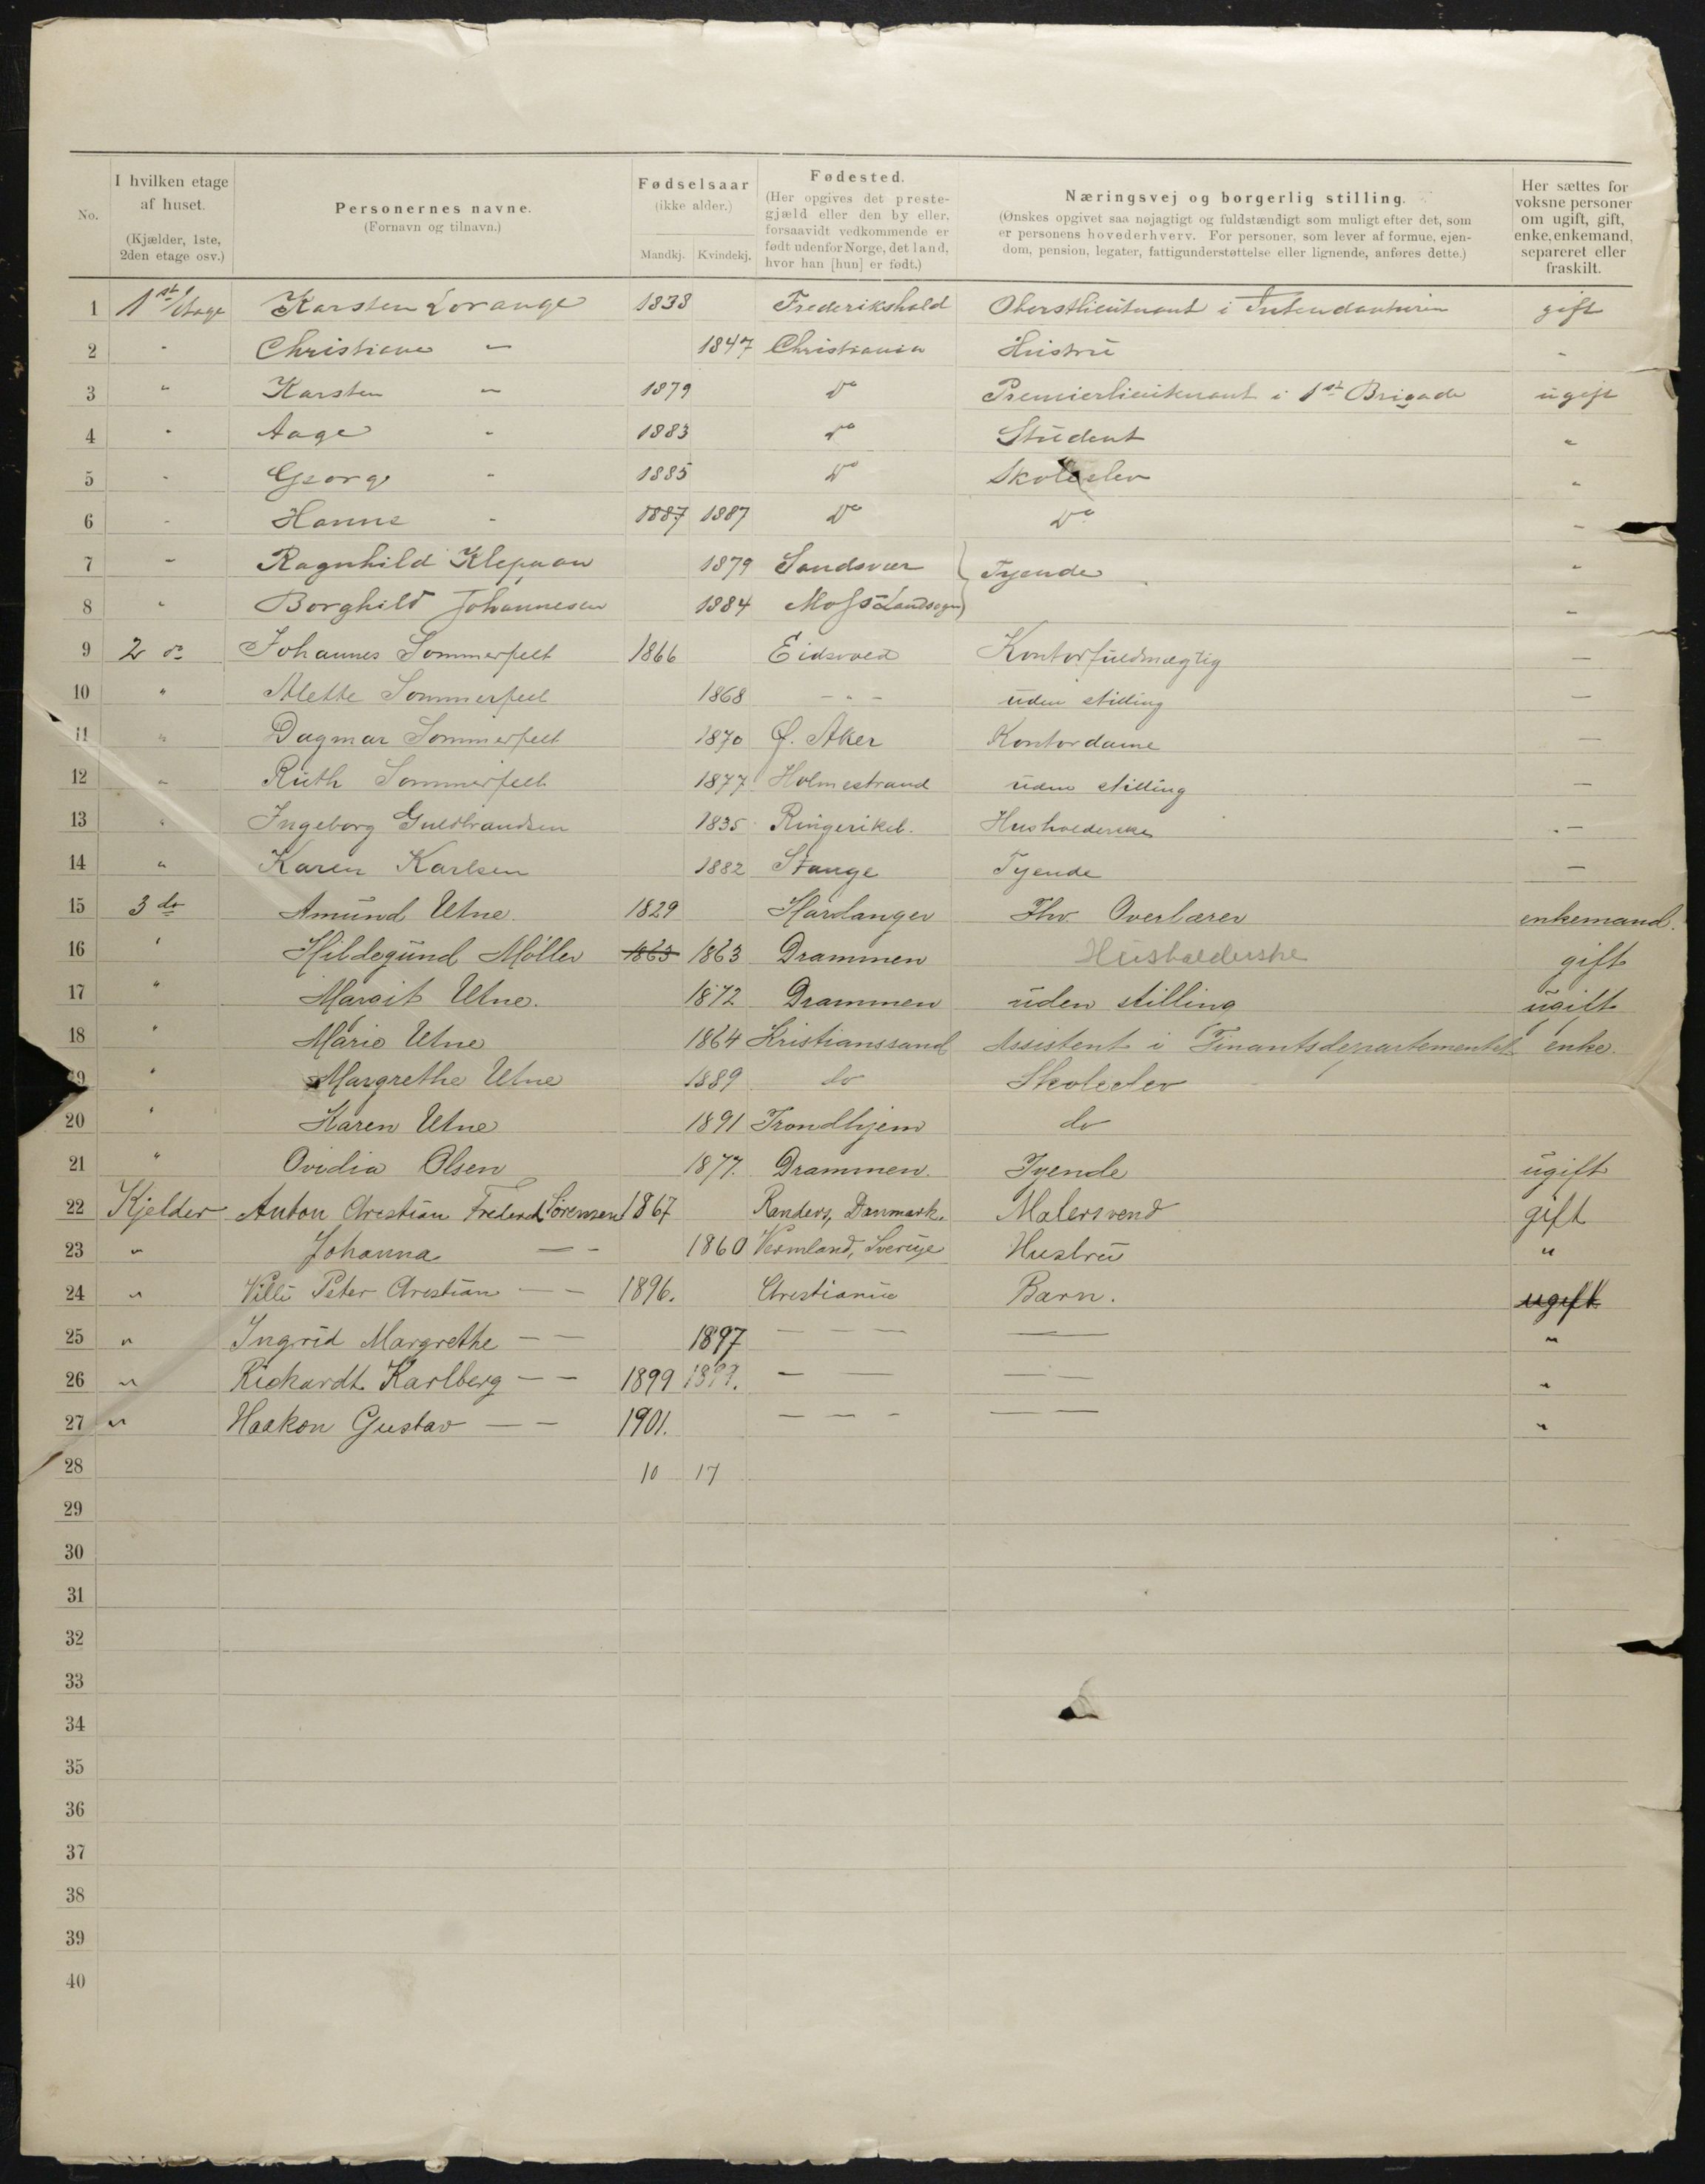 No.
I hvilken etage af huset. (Kjælder, 1ste, 2den etage osv.)
Personernes navne. (Fornavn og tilnavn.)
Fødselsaar (ikke alder.) Mandkj. Kvindekj.
Fødested. (Her opgives det prestegjæld eller den by eller, forsaavidt vedkommende er født udenfor Norge, det land, hvor han [hun] er født.)
Næringsvej og borgerlig stilling. (Ønskes opgivet saa nøjagtigt og fuldstændigt som muligt efter det, som er personens hovederhverv. For personer, som lever af formue, ejendom, pension, legater, fattigunderstøttelse eller lignende, anføres dette.)
Her sættes for voksne personer om ugift, gift, enke, enkemand, separeret eller fraskilt.
1 1st Etage Karsten Lorange 1838 Frederikshald Oberstlieutnant i Intendanturen gift
2 " Christiane " 1847 Christiania Hustru "
3 " Karsten " 1879 Do Premierlieutenant i 1st Brigade ugift
4 " Aage " 1883 Do Student "
5 " Georg " 1885 Do Skoleelev "
6 " Hanne " 1887 1887 Do Do "
7 " Ragnhild 1879 Sandsvær Tyende "
8 " Borghild Johannesen 1884 Moss Landsogn "
9 2 do Johannes Sommerfelt 1866 Eidsvold Kontorfuldmægtig —
10 " Alette Sommerfelt 1868 – " – uden stilling —
11 " Dagmar Sommerfelt 1870 Ø. Aker Kontordame —
12 " Ruth Sommerfelt 1877 Holmestrand uden stilling —
13 " Ingeborg Guldbrandsen 1835 Ringerike. Husholderske —
14 " Karen Karlsen 1882 Stange Tyende —
15 3 do Amund Utne 1829 Hardanger Fhv. Overlærer enkemand.
16 " Hildegund Møller 1863 1863 Drammen Husholderske gift
17 " Margit Utne. 1872 Drammen uden stilling ugift
18 " Marie Utne 1864 Kristianssand Assistent i Finantsdepartementet enke.
19 " Margrethe Utne 1889 do Skoleelev
20 " Karen Utne 1891 Trondhjem do
21 " Ovidia Olsen 1877. Drammen. Tyende ugift
22 Kjelder Anton Chrestian Sørensen 1867 Randers, Danmark. Malersvend gift
23 " Johanna — - 1860 Vermland, Sverige Hustru "
24 " Villi Peter Chrestian — - 1896. Chrestiania Barn. ugift
25 " Ingrid Margrethe — — 1897 — — — —— "
26 " Rickardt Karlberg — — 1899 1899. — — — — "
27 " Haakon Gustav — — 1901. — — - — — "
28 10 17
29
30
31
32
33
34
35
36
37
38
39
40